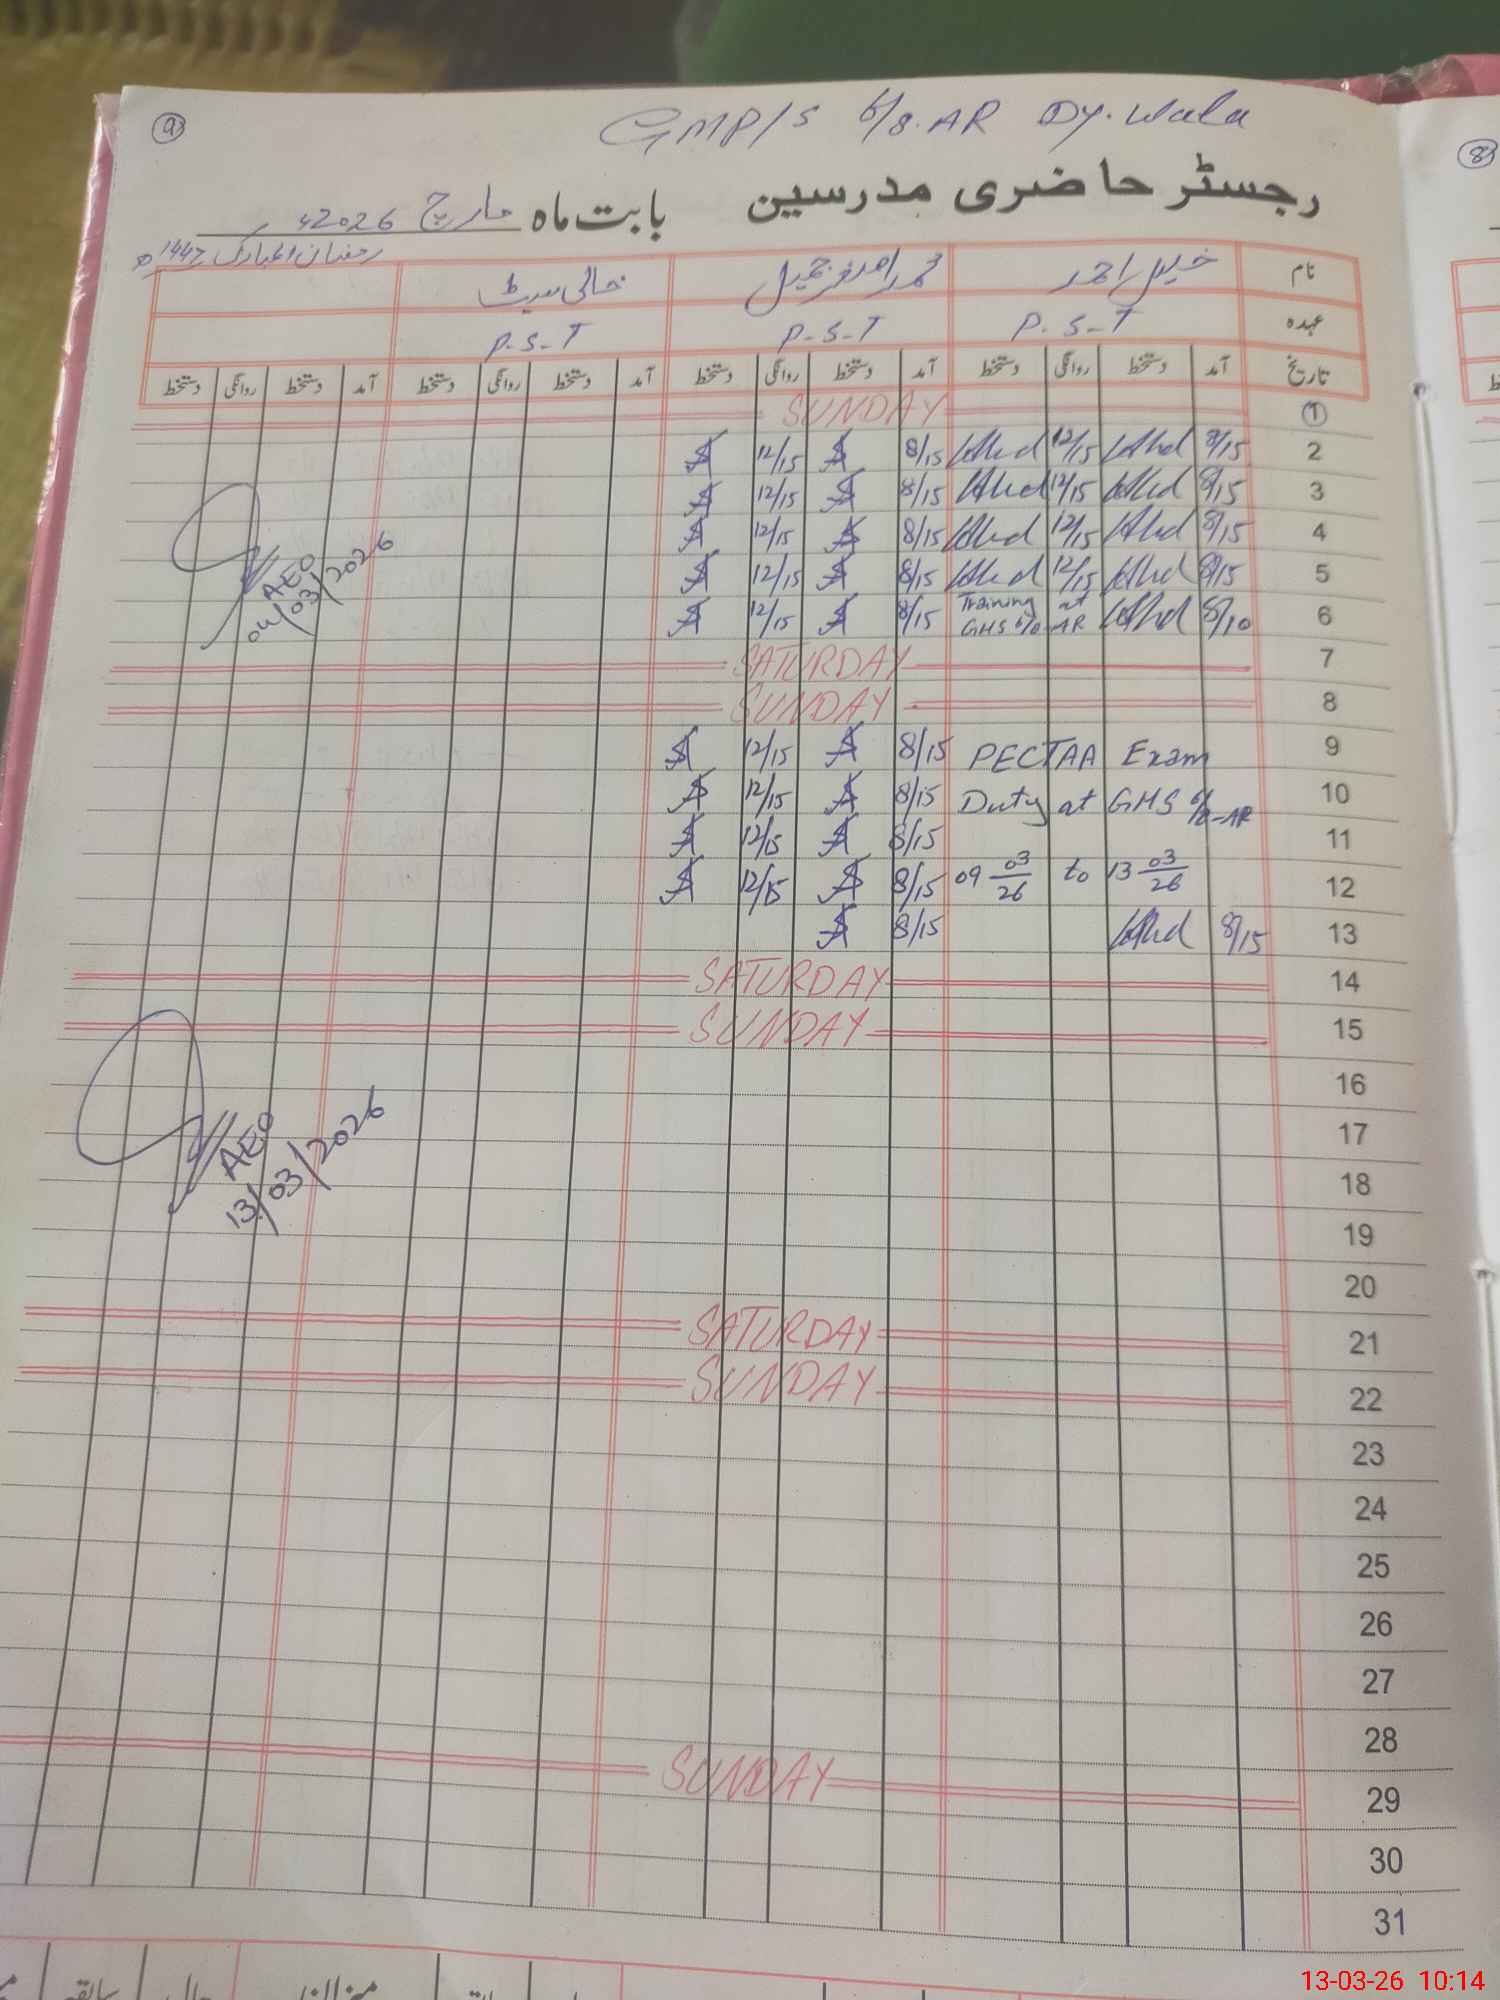 9
8
GMP/S 6/8.AR DY.Wala
رجسٹر حاضری مدرسین بابت ماہ مارچ 2026ء
رمضان المبارک 1447ھ
نام خلیل احمد محمد اصغر جمیل خالی سیٹ
عہدہ P.S-T P-S-T P-S-T
تاریخ آمد دستخط روانگی دستخط آمد دستخط روانگی دستخط آمد دستخط روانگی دستخط آمد دستخط روانگی دستخط
1 SUNDAY
2 8/15 12/15 8/15 12/15
3 8/15 12/15 8/15 12/15
4 8/15 12/15 8/15 12/15
5 8/15 12/15 8/15 12/15
6 8/10 Training at GHS 6/8 AR 8/15 12/15
AEO
04/03/2026
7 SATURDAY
8 SUNDAY
9 PECTAA Exam 8/15 12/15
10 Duty at GHS 6/8-AR 8/15 12/15
11 8/15 12/15
12 09 03/26 to 13 03/26 8/15 12/15
13 8/15 8/15
14 SATURDAY
15 SUNDAY
AEO
13/03/2026
16
17
18
19
20
21 SATURDAY
22 SUNDAY
23
24
25
26
27
28
29 SUNDAY
30
31
میزان حال سابقہ
13-03-26 10:14